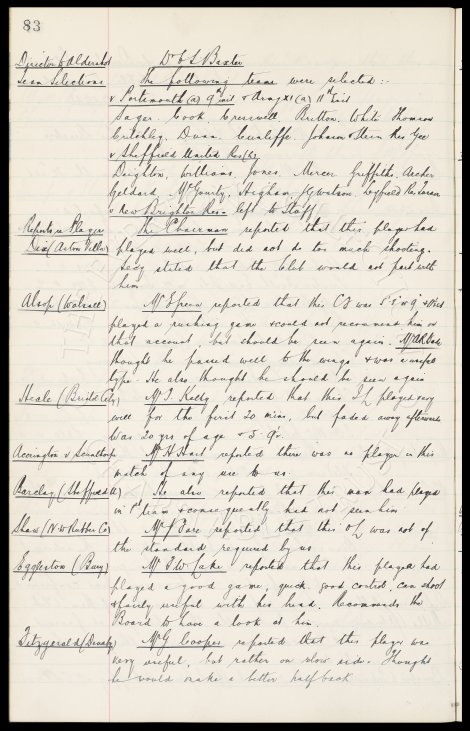 83
Director to Aldershot Dr C S Baxter
Team Selections The following teams were selected:-
v Portsmouth (a) 9th inst & Army XI (a) 11th inst
Sagar. Cook. Cresswell. Britton. White Thomson
Critchley. Dunn. Cunliffe. Johnson & Stein Res Gee
v Sheffield United Res (h)
Deighton, Williams, Jones, Mercer Griffiths, Archer
Geldard, McGourty, Higham, G Watson, Res Turner
v New Brighton Res - left to Staff
Reports re Players The Chairman reported that this player had
Dix (Aston Villa) played well, but did not do too much shooting.
Secy stated that the Club would not part with
him
Alsop (Walsall) Mr Green reported that this CF was 5'8" or 9 & 11st
played a rushing game & could not recommend him on
that account, but should be seen again. Mr
thought he passed well to the wings & was a useful
type. He also thought he should be seen again
Heale (Bristol City) Mr T. Kelly reported that this I/L played very
well for the first 20 mins, but faded away afterwards
Was 20 yrs of age & 5-9.
Accrington v Scunthorpe Mr H Hart reported there was no player in this
match of any use to us.
Barclay (Sheffield U) He also reported that this man had played
in 1st team & consequently had not seen him
Shaw (N W Rubber Co) Mr J Dare reported that this O/L was not of
the standard required by us
Eggleston (Bury) Mr T W Lake reported that this player had
played a good game, quick, good control, can shoot
& fairly useful with his head. Recommends the
Board to have a look at him.
Fitzgerald (Densaby) Mr G Cooper reported that this player was
very useful, but rather on slow side. Thought
he would make a better half back